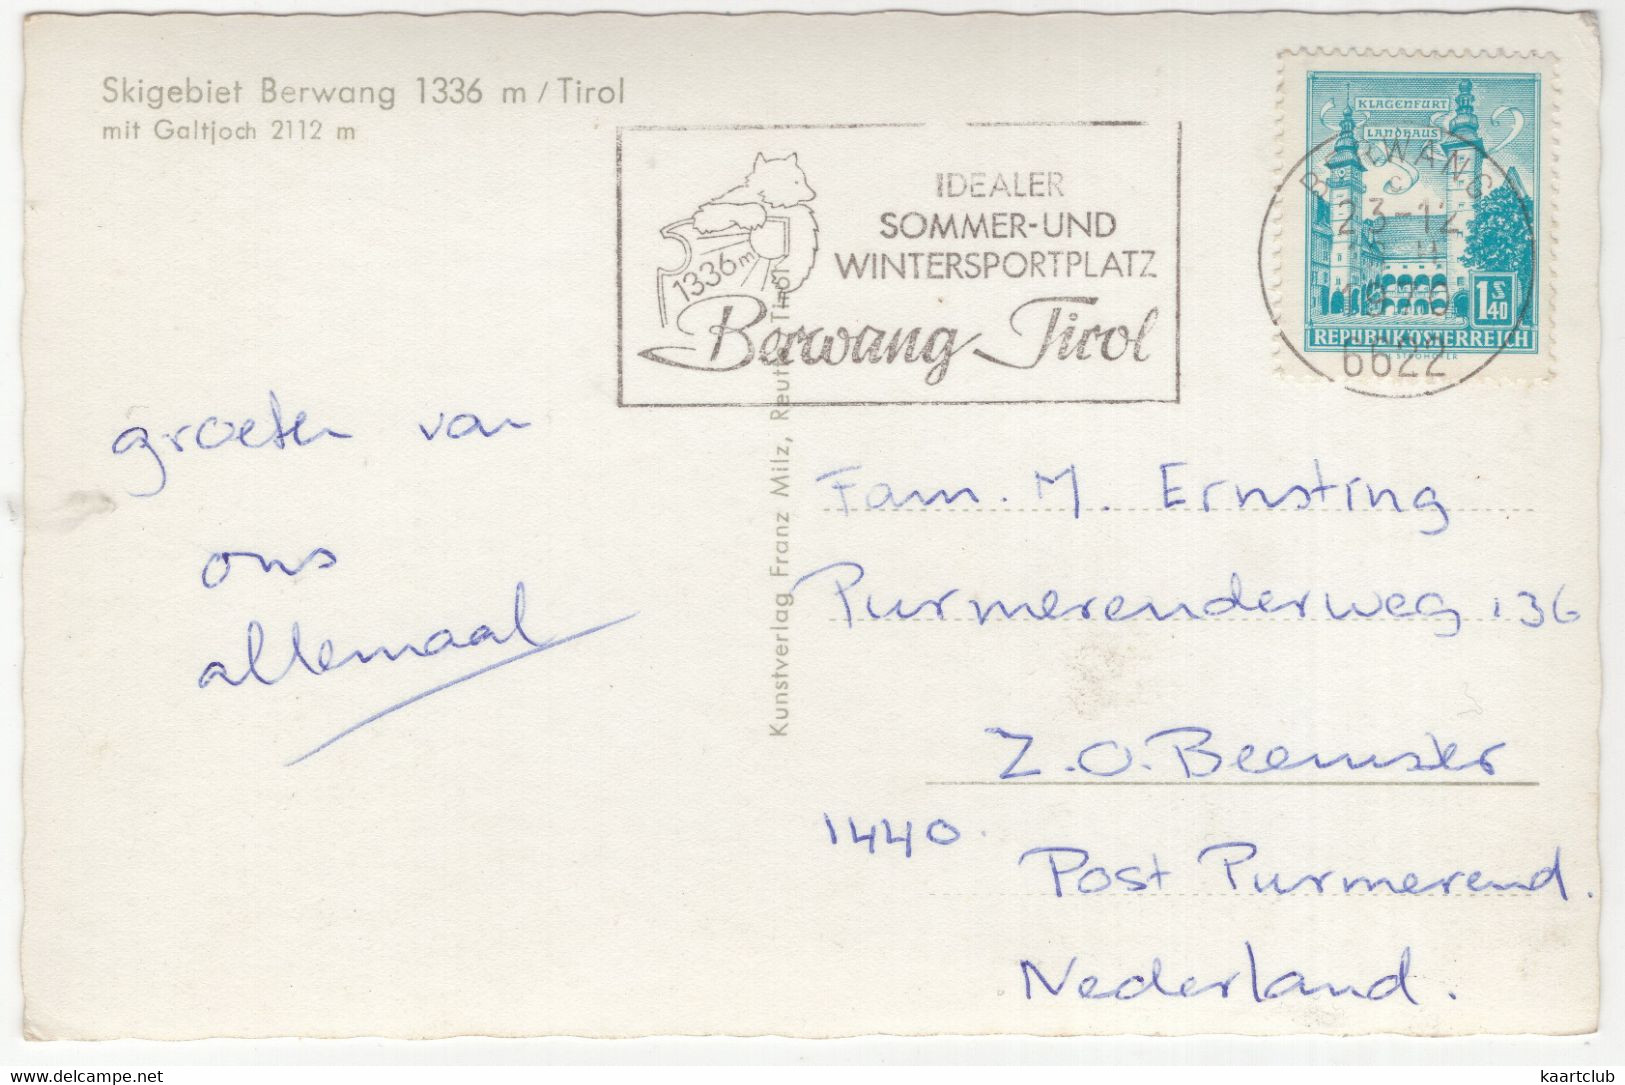 Skigebiet Berwang 1336 m / Tirol
mit Galtjoch 2112 m
IDEALER
SOMMER-UND
WINTERSPORTPLATZ
1336 m
Berwang Tirol
KLAGENFURT
LANDHAUS
1 S 40
REPUBLIK ÖSTERREICH
BERWANG
23-12
1970
6622
Kunstverlag Franz Milz, Reutte Tirol
groeten van
ons
allemaal
Fam. M. Ernsting
Purmerenderweg 136
Z.O. Beemster
1440.
Post Purmerend.
Nederland.
www.delcampe.net
kaartclub